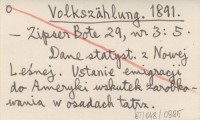 Volkszählung. 1891.
– Zipser Bote 29, nr 3: 5.
Dane statyst. z Nowej
Leśnej. Ustanie emigracji
do Ameryki wskutek zarobko-
wania w osadach tatrz.